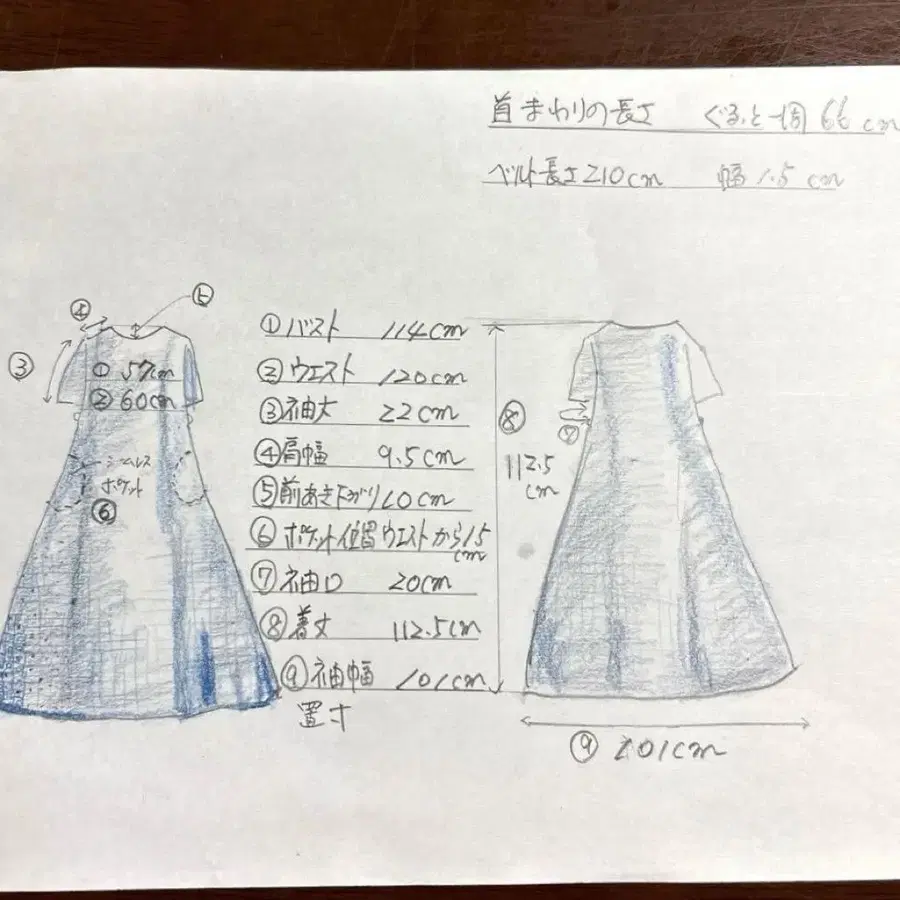 首まわりの長さ ぐるっと一周 66cm
ベルト長さ210cm 幅 1.5cm
⑤
④
③
① 57cm
② 60cm
シームレス
ポケット
⑥
① バスト 114cm
② ウエスト 120cm
③ 袖丈 22cm
④ 肩幅 9.5cm
⑤ 前あき下がり 10cm
⑥ ポケット位置ウエストから15cm
⑦ 袖口 20cm
⑧ 着丈 112.5cm
⑨ 袖幅 101cm
置寸
⑦
⑧
112.5
cm
⑨ 101cm